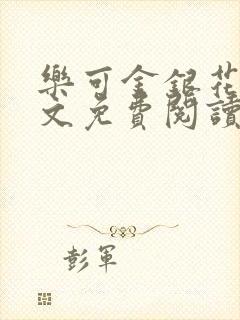 樂可金銀花
文免費閱讀
彭軍